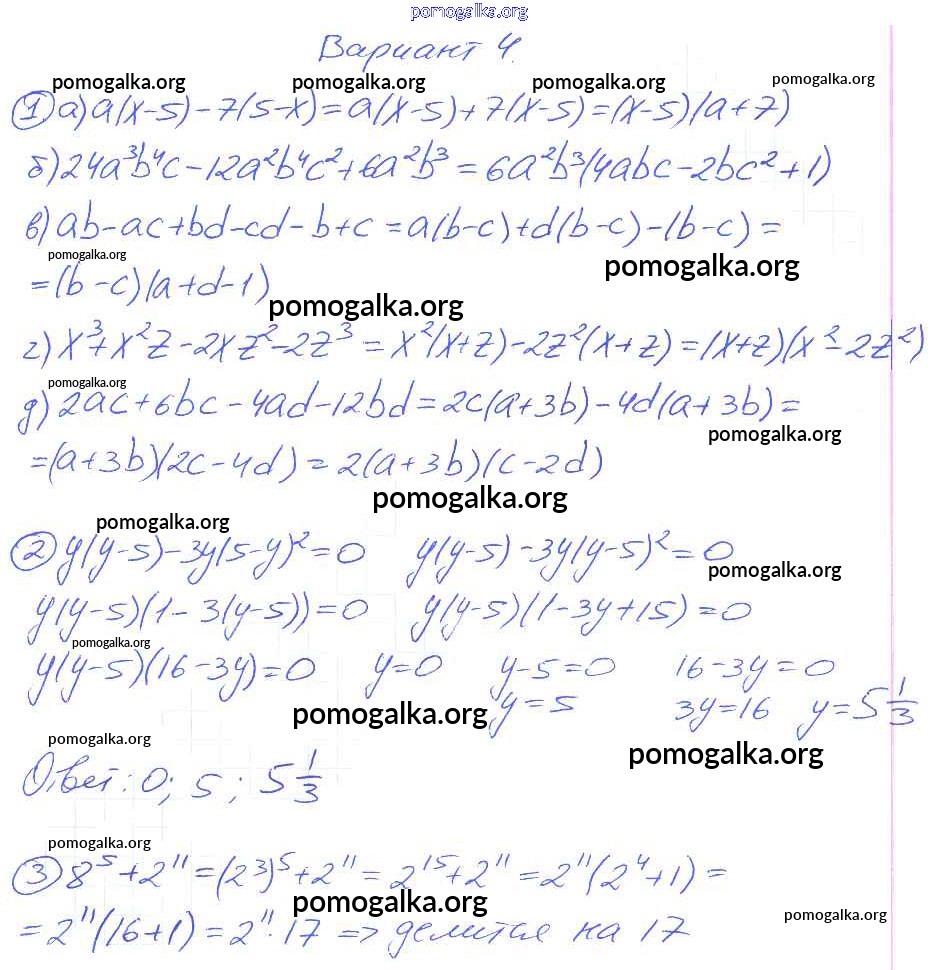 pomogalka.org
Вариант 4.
pomogalka.org pomogalka.org pomogalka.org pomogalka.org
① а) a(x-5)-7(5-x)=a(x-5)+7(x-5)=(x-5)(a+7)
б) 24a³b⁴c-12a²b⁴c²+6a²b³=6a²b³(4abc-2bc²+1)
в) ab-ac+bd-cd-b+c=a(b-c)+d(b-c)-(b-c)=
pomogalka.org pomogalka.org
=(b-c)(a+d-1)
pomogalka.org
г) x³+x²z-2xz²-2z³=x²(x+z)-2z²(x+z)=(x+z)(x²-2z²)
pomogalka.org
д) 2ac+6bc-4ad-12bd=2c(a+3b)-4d(a+3b)=
pomogalka.org
=(a+3b)(2c-4d)=2(a+3b)(c-2d)
pomogalka.org
pomogalka.org
② y(y-5)-3y(5-y)²=0 y(y-5)-3y(y-5)²=0
pomogalka.org
y(y-5)(1-3(y-5))=0 y(y-5)(1-3y+15)=0
pomogalka.org
y(y-5)(16-3y)=0 y=0 y-5=0 16-3y=0
pomogalka.org y=5 3y=16 y=5 1/3
pomogalka.org pomogalka.org
Ответ: 0; 5; 5 1/3
pomogalka.org
③ 8⁵+2¹¹=(2³)⁵+2¹¹=2¹⁵+2¹¹=2¹¹(2⁴+1)=
pomogalka.org pomogalka.org
=2¹¹(16+1)=2¹¹·17 => делится на 17